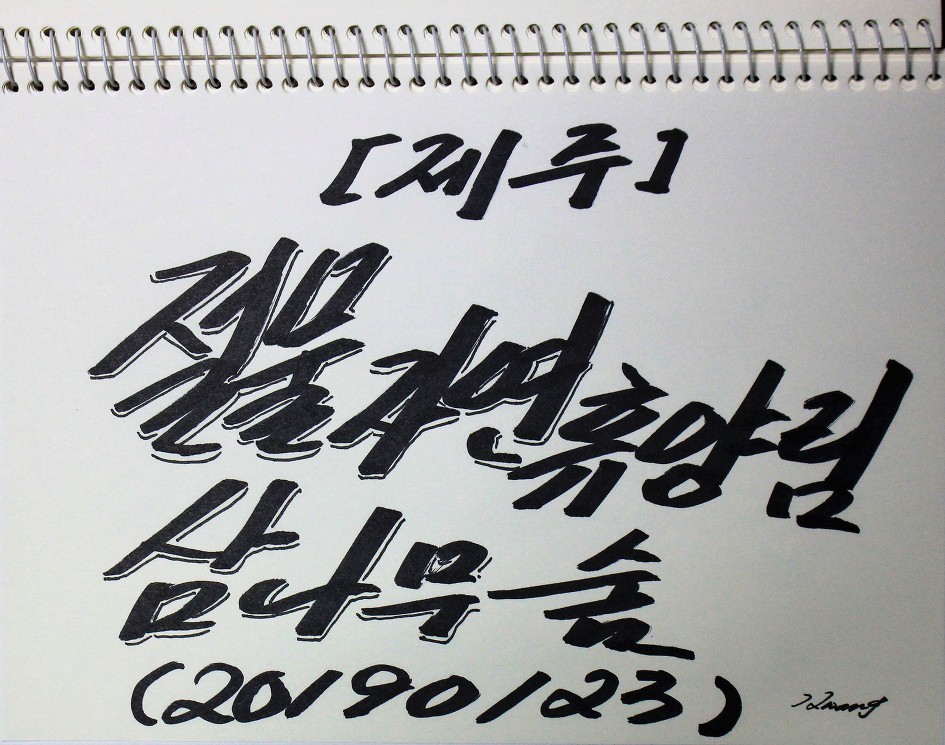 [제주]
절물자연휴양림
삼나무숲
(20190123)